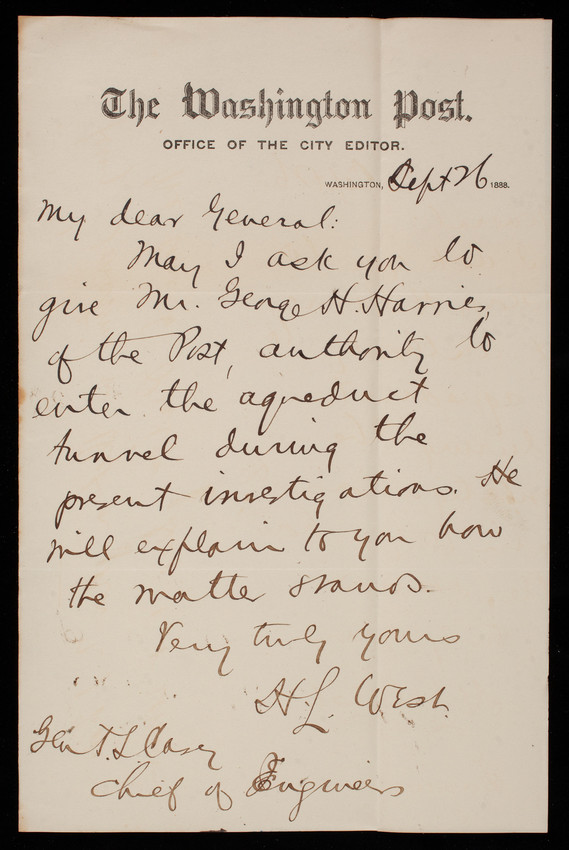 The Washington Post.
OFFICE OF THE CITY EDITOR.
WASHINGTON, Sept 26 1888.
My dear General:
May I ask you to
give Mr. George H. Harries,
of the Post, authority to
enter the aqueduct
tunnel during the
present investigations. He
will explain to you how
the matter stands.
Very truly yours
H L. West.
Gen T. L. Casey
Chief of Engineers